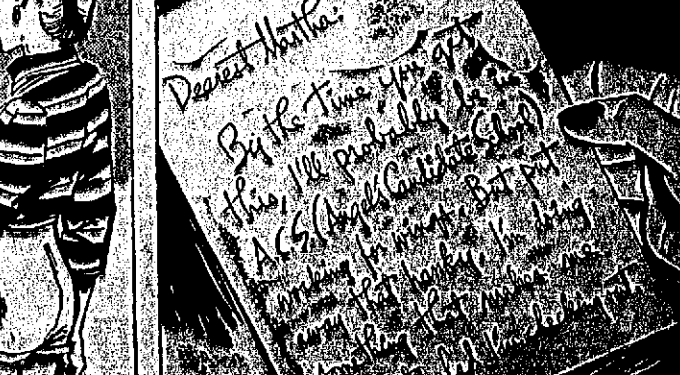 Dearest Martha:
By the time you get
this, I'll probably be in
A.C.S. (Angel's Candidate School)
working for wings. But put
away that hanky. I'm doing
something that makes me
I'm checking out.